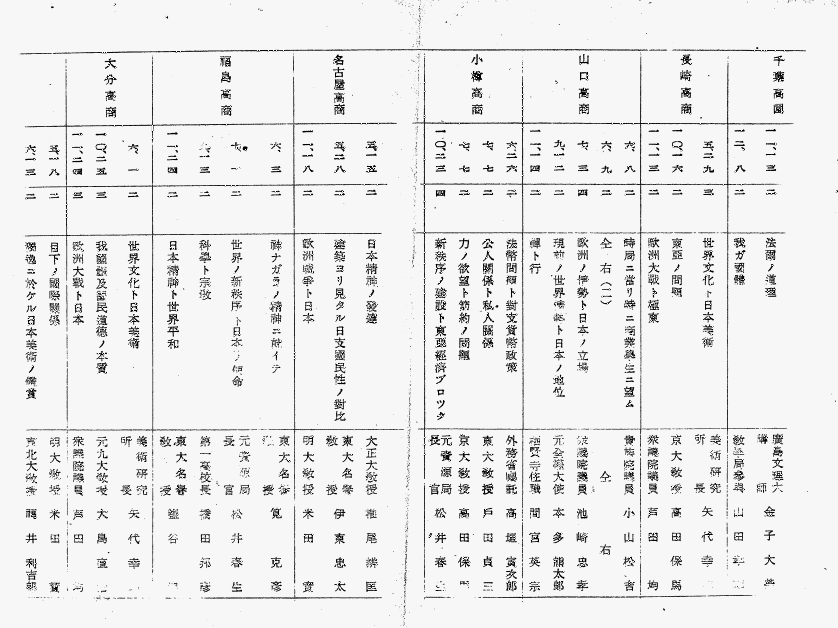 千葉高園
一一、一三 二 法爾ノ道理 廣島文理大講師 金子大
一二、八 二 我ガ國體 教學局參與 山田孝
長崎高商
五、二九 三 世界文化ト日本美術 美術研究所長 矢代幸
一〇、一六 二 東亞ノ問題 京大教授 高田保馬
一一、一三 二 歐洲大戰ト極東 衆議院議員 芦田均
山口高商
六、八 二 時局ニ當リ特ニ高商學生ニ望ム 貴族院議員 小山松吉
六、九 二 仝右(二) 仝右
七、三 四 歐洲ノ情勢ト日本ノ立場 衆議院議員 池崎忠孝
九、一二 二 現前ノ世界情勢ト日本ノ地位 元全權大使 本多熊太郎
一一、一四 二 禪ト行 住職 間宮英宗
小樽高商
六、二六 二 法幣問題ト對支貨幣政策 外務省囑託 高垣寅次郎
七、七 二 公人關係ト私人關係 東大教授 戸田貞三
七、七 二 力ノ欲望ト節約ノ問題 京大教授 高田保馬
一〇、二三 四 新秩序ノ建設ト東亞經濟ブロツク 元資源局長官 松井春生
名古屋高商
五、一五 二 日本精神ノ發達 大正大教授 椎尾辨匡
五、二八 二 建築ヨリ見タル日支國民性ノ對比 東大名譽教授 伊東忠太
一一、一八 二 歐洲戰爭ト日本 明大教授 米田實
福島高商
六、三 二 神ナガラノ精神ニ就イテ 東大名譽教授 筧克彦
七、一 二 世界ノ新秩序ト日本ノ使命 元資源局長官 松井春生
六、一三 二 科學ト宗教 第一高校長 橋田邦彦
一一、二四 二 日本精神ト世界平和 東大名譽教授 鹽谷
大分高商
六、一 二 世界文化ト日本美術 美術研究所長 矢代幸
一〇、二五 三 我國體及國民道德ノ本質 元九大教授 大島直
一一、二四 三 歐洲大戰ト日本 衆議院議員 芦田均
五、一八 二 目下ノ國際關係 明大教授 米田實
六、一三 二 獨逸ニ於ケル日本美術ノ鑑賞 東北大教授 福井利吉郎